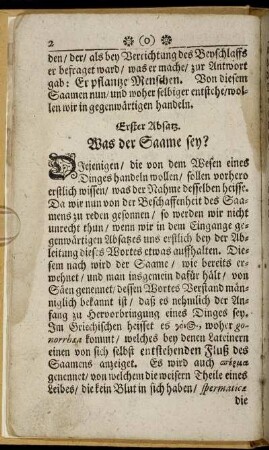 2 ❀ (0) ❀
den/ der/ als bey Verrichtung des Beyschlaffs
er befraget ward/ was er mache/ zur Antwort
gab: Er pflantze Menschen. Von diesem
Saamen nun/ und woher selbiger entstehe/ wol-
len wir in gegenwärtigen handeln.
Erster Absatz.
Was der Saame sey?
Diejenigen/ die von dem Wesen eines
Dinges handeln wollen/ sollen vorhero
erstlich wissen/ was der Nahme desselben heisse.
Da wir nun von der Beschaffenheit des Saa-
mens zu reden gesonnen/ so werden wir nicht
unrecht thun/ wenn wir in dem Eingange ge-
genwärtigen Absatzes uns erstlich bey der Ab-
leitung dieses Wortes etwas auffhalten. Die-
sem nach wird der Saame/ wie bereits er-
wehnet/ und man insgemein dafür hält/ von
Säen genennet/ dessen Wortes Verstand män-
niglich bekannt ist/ daß es nehmlich der An-
fang zu Hervorbringung eines Dinges sey.
Im Griechischen heisset es γόνος, woher go-
norrhæa kommt/ welches bey denen Lateinern
einen von sich selbst entstehenden Fluß des
Saamens anzeiget. Es wird auch σπέρμα
genennet/ von welchem die weissern Theile eines
Leibes/ die kein Blut in sich haben/ spermaticæ
die